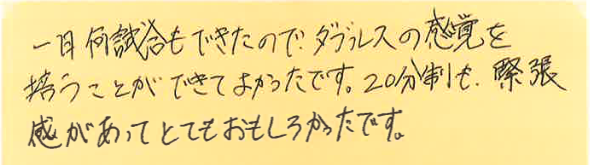 一日何試合もできたので、ダブルスの感覚を
培うことができてよかったです。20分制も、緊張
感があってとてもおもしろかったです。